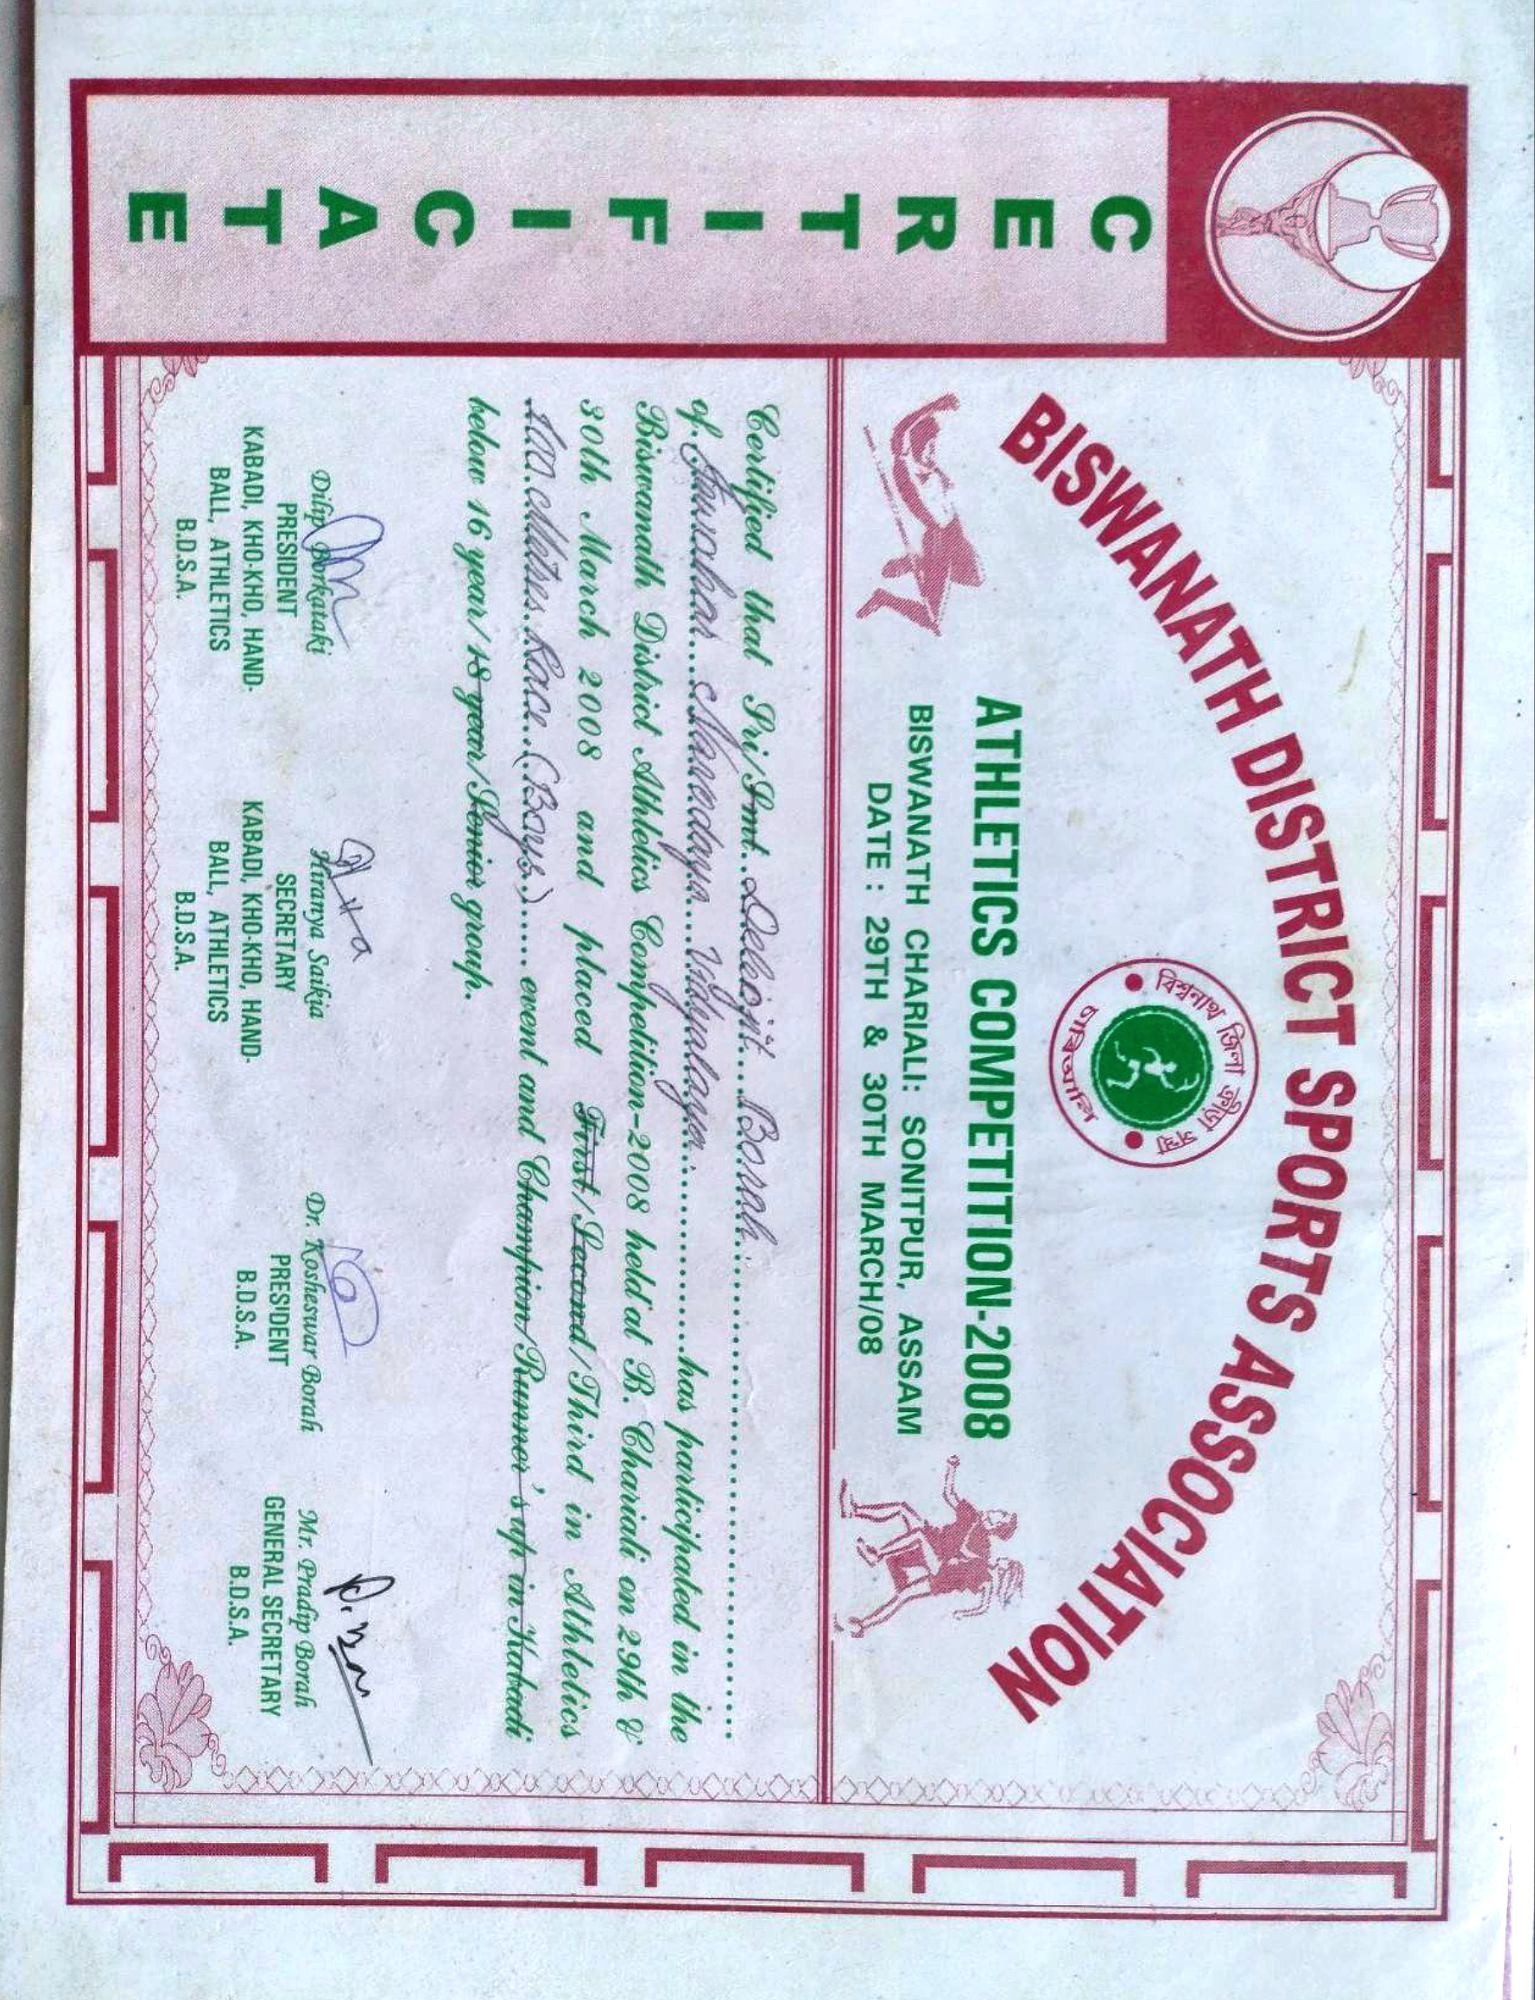 CERTIFICATE
BISWANATH DISTRICT SPORTS ASSOCIATION
বিশ্বনাথ জিলা ক্রীড়া সন্থা
চাৰিআলি
ATHLETICS COMPETITION-2008
BISWANATH CHARIALI: SONITPUR, ASSAM
DATE : 29TH & 30TH MARCH/08
Certified that Sri/Smt. Debojit Borah
of Jawahar Navodaya Vidyalaya has participated in the
Biswanath District Athletics Competition-2008 held at B. Chariali on 29th &
30th March 2008 and placed First/Second/Third in Athletics
Metres Race (Boys) event and Champion/Runner's up in Kabadi
below 16 year/18 year/Senior group.
Dilip Borkataki
PRESIDENT
KABADI, KHO-KHO, HAND-
BALL, ATHLETICS
B.D.S.A.
Hiranya Saikia
SECRETARY
KABADI, KHO-KHO, HAND-
BALL, ATHLETICS
B.D.S.A.
Dr. Kosheswar Borah
PRESIDENT
B.D.S.A.
Mr. Pradip Borah
GENERAL SECRETARY
B.D.S.A.